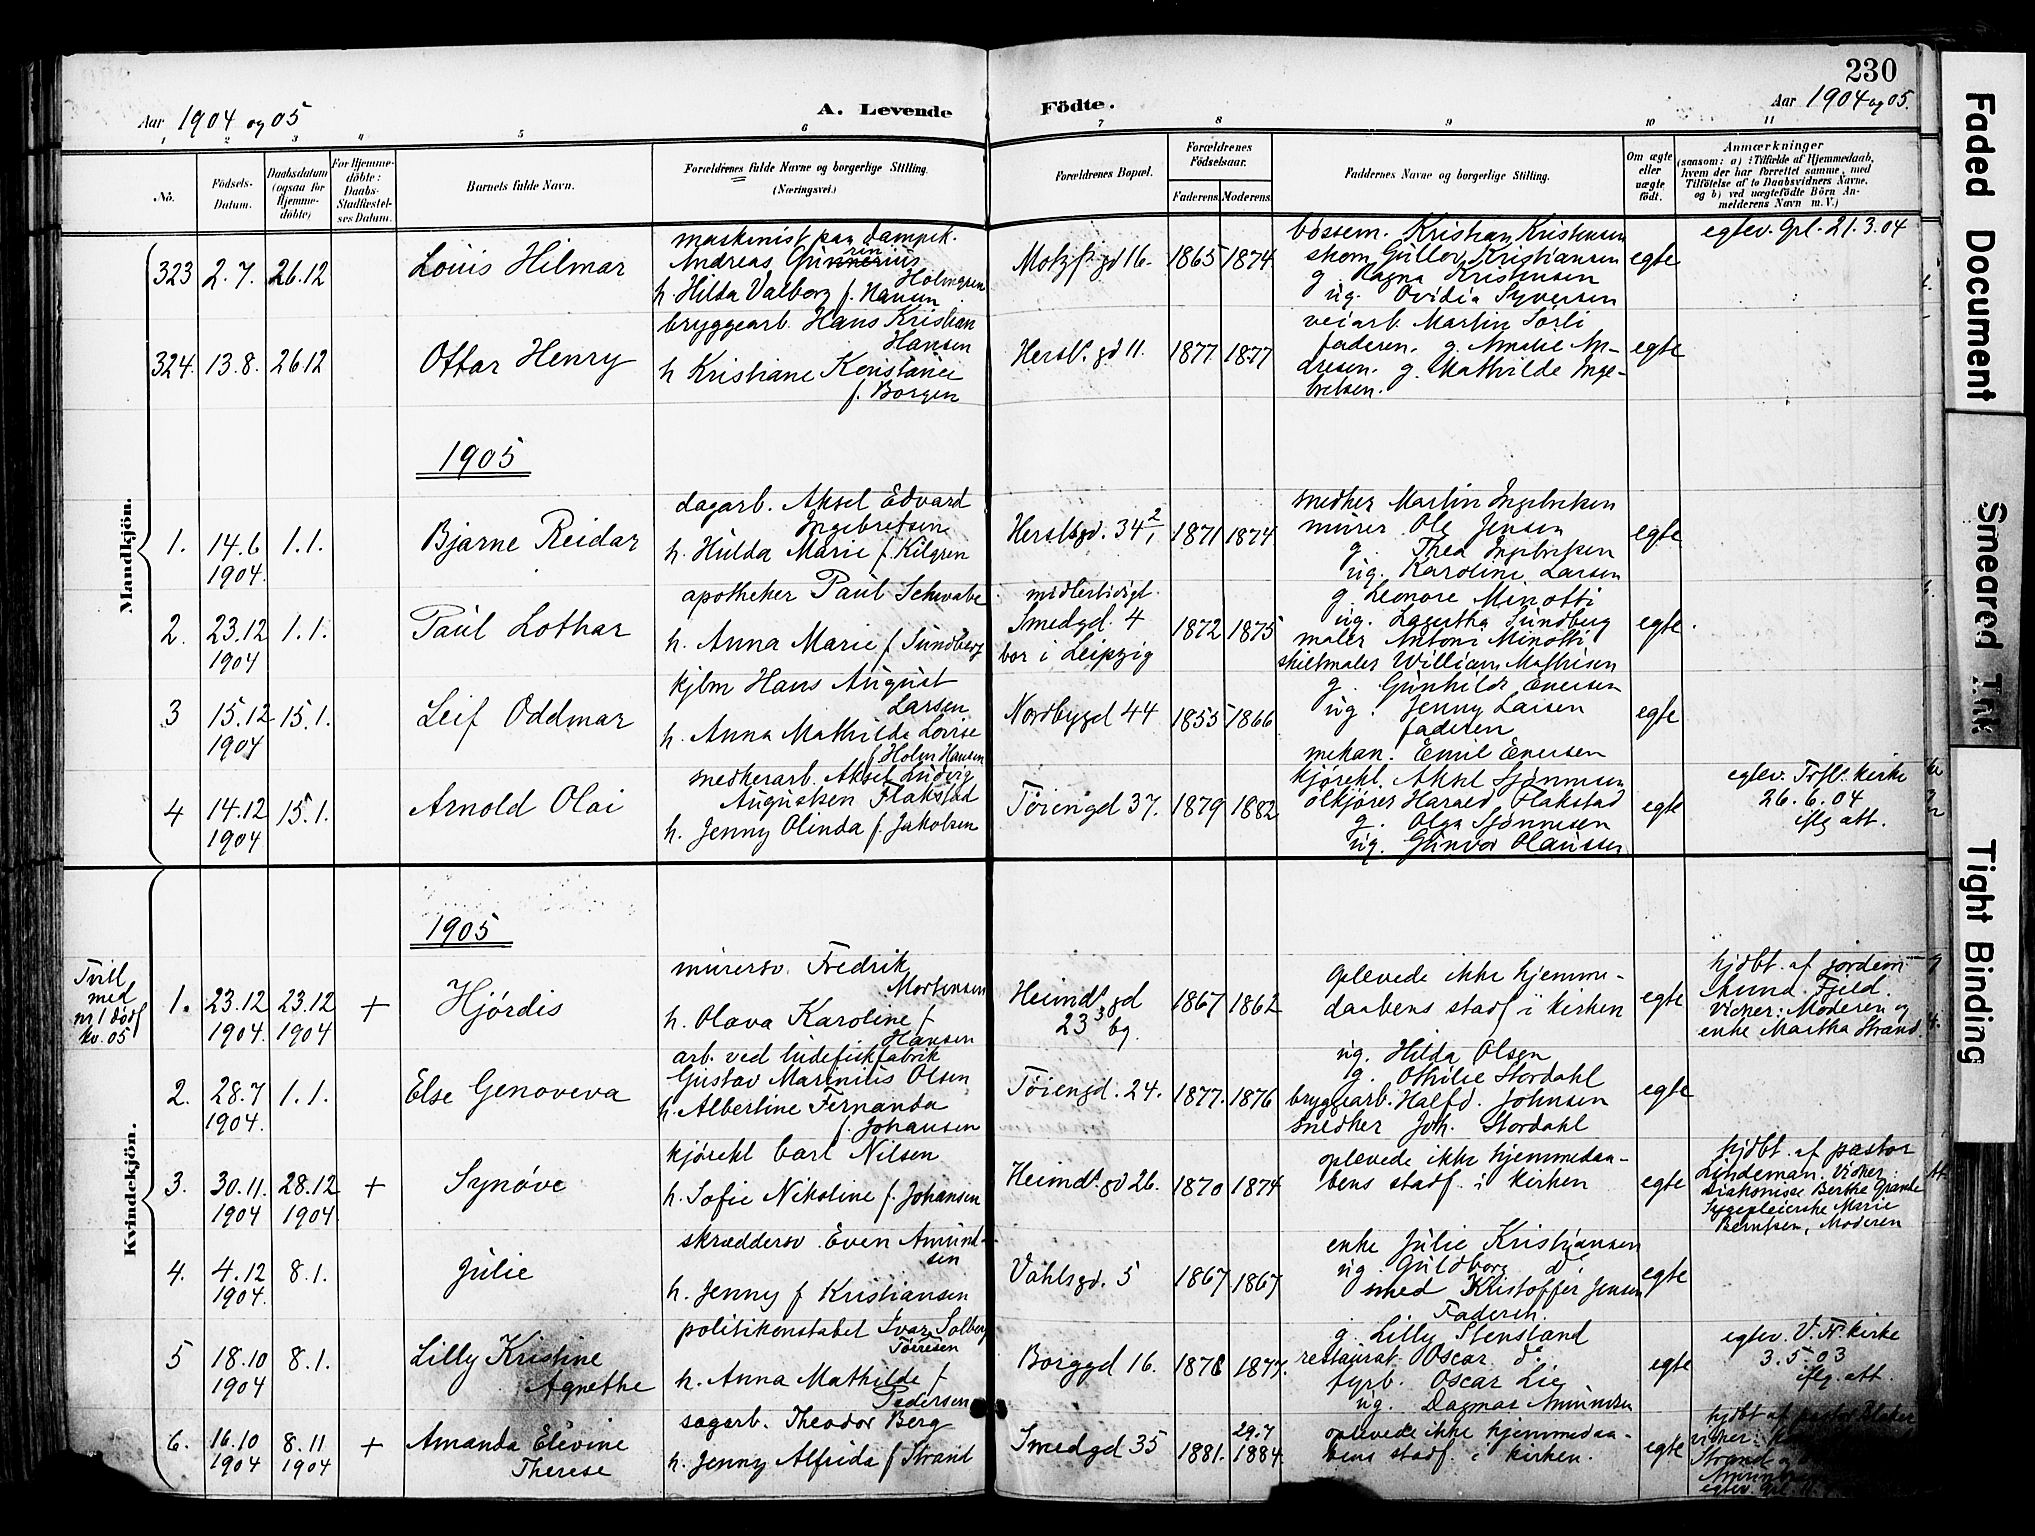 230
Aar 1904 og 05
A. Levende Fødte.
Aar 1904 og 05.
1 2 3 4 5 6 7 8 9 10 11
No.
Födsels-
Datum.
Daabsdatum
(ogsaa for
Hjemme-
döbte)
For Hjemme-
döbte:
Daabs-
Stadfæstel-
ses Datum.
Barnets fulde Navn.
Forældrenes fulde Navne og borgerlige Stilling.
(Næringsvei.)
Forældrenes Bopæl.
Forældrenes
Födselsaar.
Faderens
Moderens.
Faddernes Navne og borgerlige Stilling.
Om ægte
eller
uægte
födt.
Anmærkninger
(saasom: a) i Tilfælde af Hjemmedaab,
hvem der har forrettet samme, med
Tilföielse af to Daabsvidners Navne,
og b) ved uægtefödte Börn An-
melderens Navn m. V.)
Mandkjön.
323 2.7. 26.12
Louis Hilmar
maskinist paa dampsk.
Andreas
Holmgren
h. Hilda Valborg f. Hansen
Motzf. gd 16.
1865 1874
bøssem. Kristian Kristensen
skom Kristiansen
g Ragna Kristensen
ug. Ovidia Syversen
egte
egtev. Grl. 21.3.04
324. 13.8. 26.12
Ottar Henry
bryggearb. Hans Kristian
Hansen
h Kristiane Konstance
f. Borgen
Hersl. gd 11.
1877 1877
veiarb. Martin Sørli
faderen. g. Amalie An-
dresen. g. Mathilde Inge-
bretsen.
egte
1905
1. 14.6 1.1.
1904.
Bjarne Reidar
dagarb. Aksel Edvard
Ingebretsen
h. Hulda Marie f. Kilgren
Herslsgd. 34
1871 1874
snedker Martin Ingebretsen
murer Ole Jensen
g. Thea Ingebretsen
ug. Karoline Larsen
egte
2. 23.12 1.1.
1904
Paul Lothar
apotheker Paul Schwabe
h. Anna Marie f Sundberg
midlertidigt.
Smedgd. 4
bor i Leipzig
1872 1875
g. Leonore Minotti
ug. Lagertha Sundberg
maler Antoni Minotti
skiltmaler William Mathisen
egte.
3 15.12 15.1.
1904
Leif Oddmar
kjlm Hans August
Larsen
h. Anna Mathilde Lovise
f Holm Hansen
Nordbygd 44
1855 1866
g. Gunhilde Enersen
ug. Jenny Larsen
faderen
mekan. Emil Enersen
egte
4 14.12 15.1.
1904
Arnold Olai
snedkerarb. Aksel Ludvig
Augustsen Flakstad
h. Jenny Olinda f. Jakobsen
Tøiengd 37.
1879 1882
kjørekl. Aksel Sjønnesen
ølkjører Harald Flakstad
g. Olga Sjønnesen
ug. Gunvor Olaussen
egte
egtev. Trfl. kirke
26.6.04
iflg att.
Kvindekjön.
1905
Tvill
med
nr 1 dødf
kv. 05
1. 23.12 23.12 +
1904. 1904
Hjørdis
murersv. Fredrik
Mortensen
h. Olava Karoline f
Hansen
Heimdl. gd
23 bg.
1867 1862
oplevede ikke hjemme-
daabens stadf i kirken
egte
hjdbt. af jordem
Fjeld.
Vidner: Moderen og
enke Martha Strand.
2. 28.7 1.1.
1904.
Else Genoveva
arb. ved ludefiskfabrik
Gustav Marinius Olsen
h. Albertine Fernanda
f. Johansen
Tøiengd. 24.
1877. 1876
ug. Hilda Olsen
g. Othilie Stordahl
bryggearb. Halfd. Johnsen
snedker Joh. Stordahl
egte
3. 30.11. 28.12 +
1904 1904.
Synøve
kjørekl Carl Nilsen
h. Sofie Nikoline f. Johansen
Heimdl. gd 26.
1870 1874
oplevede ikke hjemmedaa-
bens stadf. i kirken
egte
hjdbt. af pastor
Lindeman. Vidner:
Diakonisse Berthe Grande
Sygepleierske Marie
Berntsen, Moderen
4. 4.12 8.1.
1904.
Julie
skræddersv. Even Amund-
sen
h. Jenny f Kristiansen
Vahlsgd. 5
1867 1867
enke Julie Kristiansen
ug. Guldborg do
smed Kristoffer Jensen
Faderen.
egte
5 18.10 8.1.
1904
Lilly Kristine
Agnethe
politikonstabel Ivar Solberg
Tøresen
h. Anna Mathilde f
Pedersen
Borggd 16.
1878 1877.
g. Lilly Stensland
restaurat. Oscar do
fyrb. Oscar Lie
ug. Dagmar Amundsen
egte
egtev. V. Ak. kirke
3.5.03
iflg. att.
6. 16.10 8.11 +
1904 1904
Amanda Elevine
Therese
sagarb. Theodor Berg
h. Jenny Alfrida f Strand
Smedgd 35
1881. 29.7
1884.
oplevede ikke hjemmedaa-
bens stadf. i kirken.
egte
hjdbt af pastor
vidner:
Strand
egtev. Grl.
Faded Document
Smeared Ink
Tight Binding